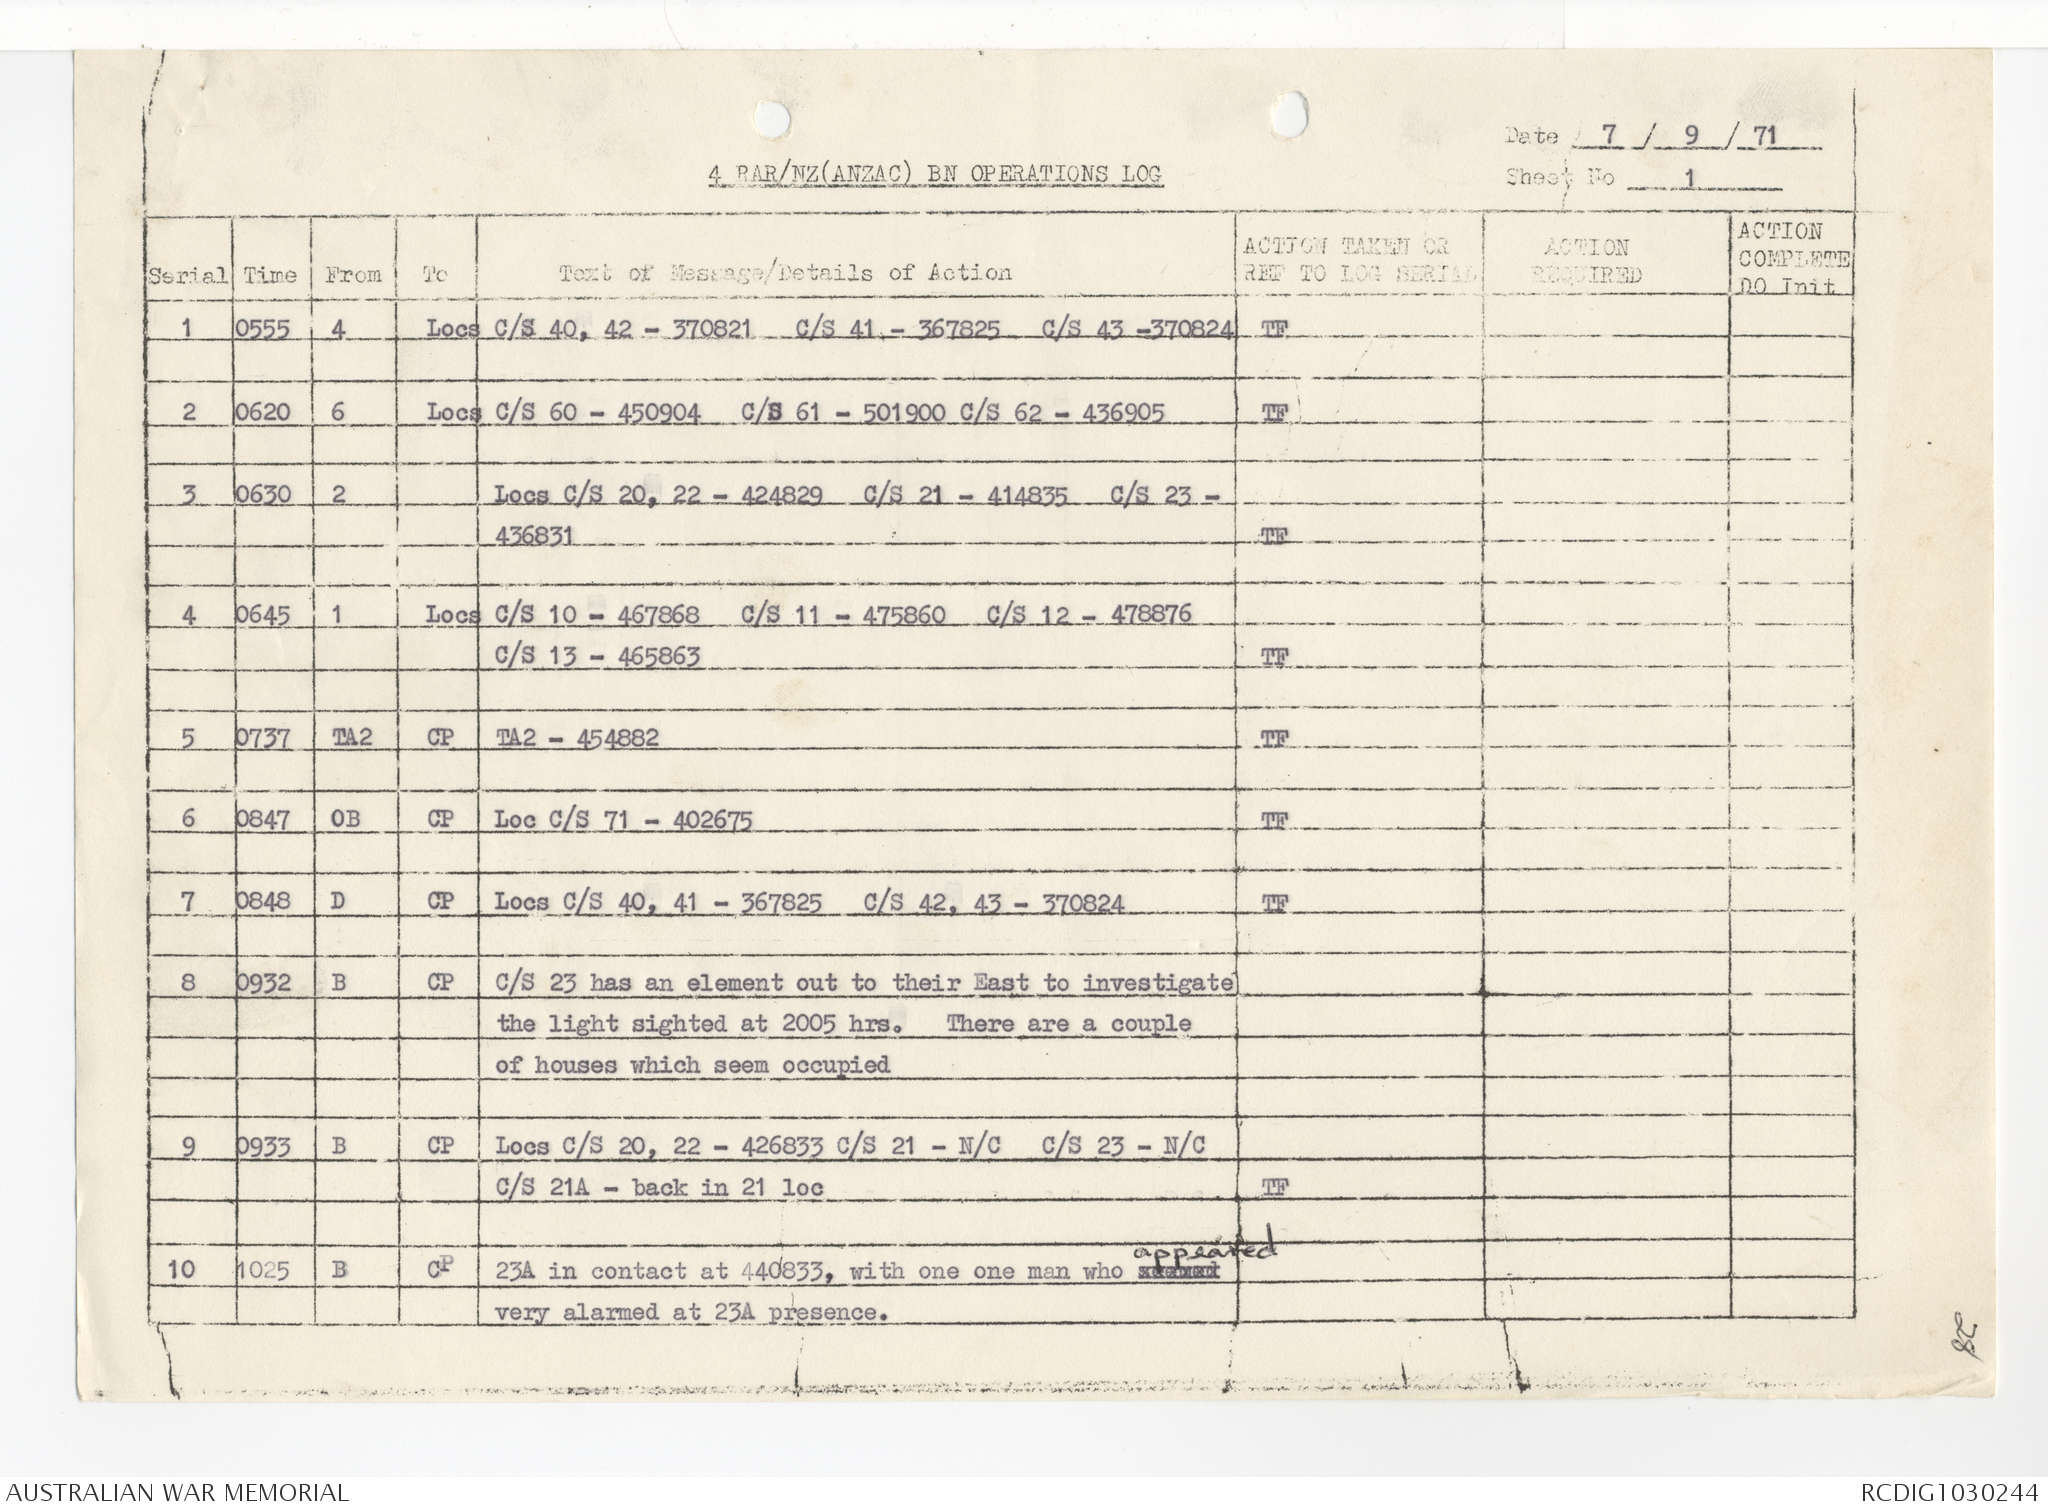 Date 7 / 9 / 71
4 RAR/NZ(ANZAC) BN OPERATIONS LOG
Sheet No 1
Serial Time From To Text of Message/Details of Action ACTION TAKEN OR REF TO LOG SERIAL ACTION REQUIRED ACTION COMPLETE DO Init
1 0555 4 Locs C/S 40, 42 - 370821 C/S 41 - 367825 C/S 43 -370824 TF
2 0620 6 Locs C/S 60 - 450904 C/S 61 - 501900 C/S 62 - 436905 TF
3 0630 2 Locs C/S 20, 22 - 424829 C/S 21 - 414835 C/S 23 -
436831 TF
4 0645 1 Locs C/S 10 - 467868 C/S 11 - 475860 C/S 12 - 478876
C/S 13 - 465863 TF
5 0737 TA2 CP TA2 - 454882 TF
6 0847 OB CP Loc C/S 71 - 402675 TF
7 0848 D CP Locs C/S 40, 41 - 367825 C/S 42, 43 - 370824 TF
8 0932 B CP C/S 23 has an element out to their East to investigate
the light sighted at 2005 hrs. There are a couple
of houses which seem occupied
9 0933 B CP Locs C/S 20, 22 - 426833 C/S 21 - N/C C/S 23 - N/C
C/S 21A - back in 21 loc TF
appeared
10 1025 B CP 23A in contact at 440833, with one one man who seemed
very alarmed at 23A presence.
28
AUSTRALIAN WAR MEMORIAL
RCDIG1030244